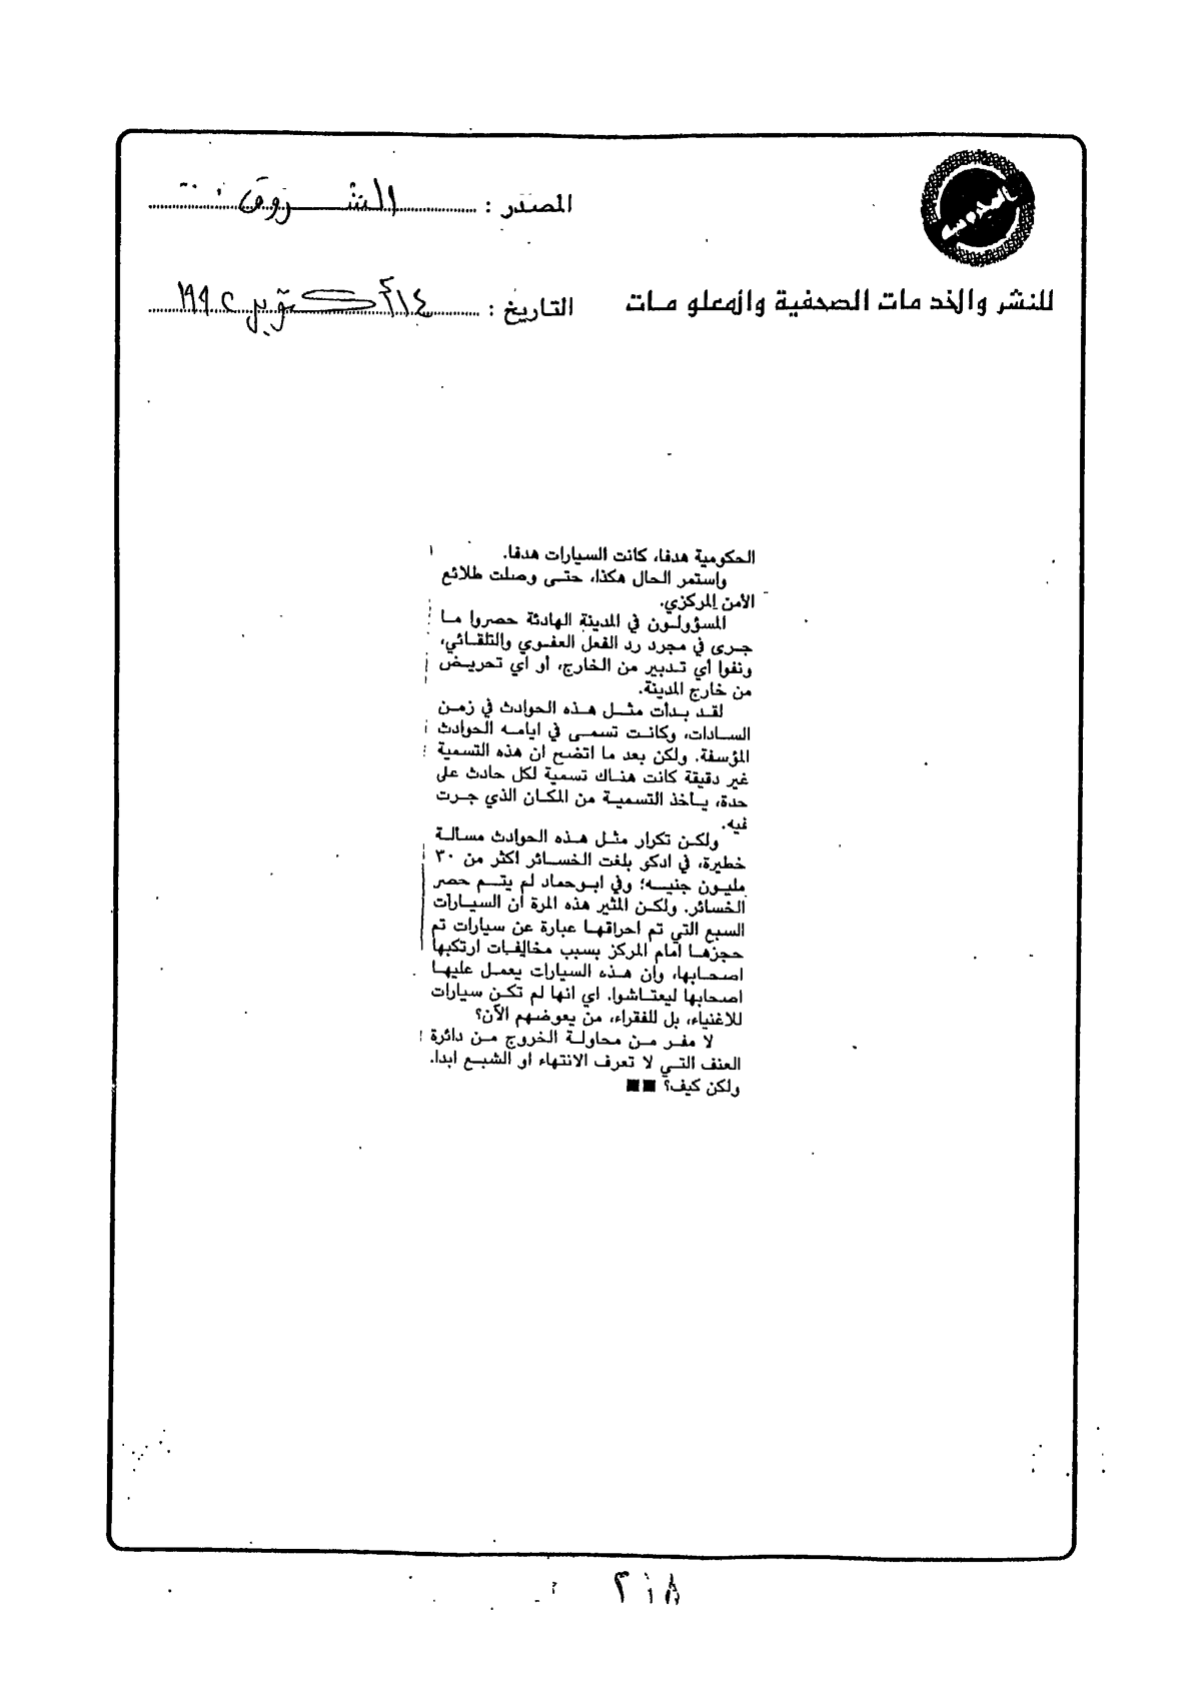 المصدر : الشروق
للنشر والخدمات الصحفية والمعلومات
التاريخ : ١٤ أكتوبر ١٩٩٢
الحكومية هدفا، كانت السيارات هدفا.
واستمر الحال هكذا، حتى وصلت طلائع
الأمن المركزي.
المسؤولون في المدينة الهادئة حصروا ما
جرى في مجرد رد الفعل العفوي والتلقائي،
ونفوا أي تدبير من الخارج، أو اي تحريض
من خارج المدينة.
لقد بدأت مثل هذه الحوادث في زمن
السادات، وكانت تسمى في ايامه الحوادث
المؤسفة. ولكن بعد ما اتضح ان هذه التسمية
غير دقيقة كانت هناك تسمية لكل حادث على
حدة، يأخذ التسمية من المكان الذي جرت
فيه.
ولكن تكرار مثل هذه الحوادث مسالة
خطيرة، في ادكو بلغت الخسائر اكثر من ٣٠
مليون جنيه؛ وفي ابوحماد لم يتم حصر
الخسائر. ولكن المثير هذه المرة ان السيارات
السبع التي تم احراقها عبارة عن سيارات تم
حجزها أمام المركز بسبب مخالفات ارتكبها
اصحابها، وان هذه السيارات يعمل عليها
اصحابها ليعتاشوا. اي انها لم تكن سيارات
للاغنياء، بل للفقراء، من يعوضهم الآن؟
لا مفر من محاولة الخروج من دائرة
العنف التي لا تعرف الانتهاء او الشبع ابدا.
ولكن كيف؟ ■■
٢١٨